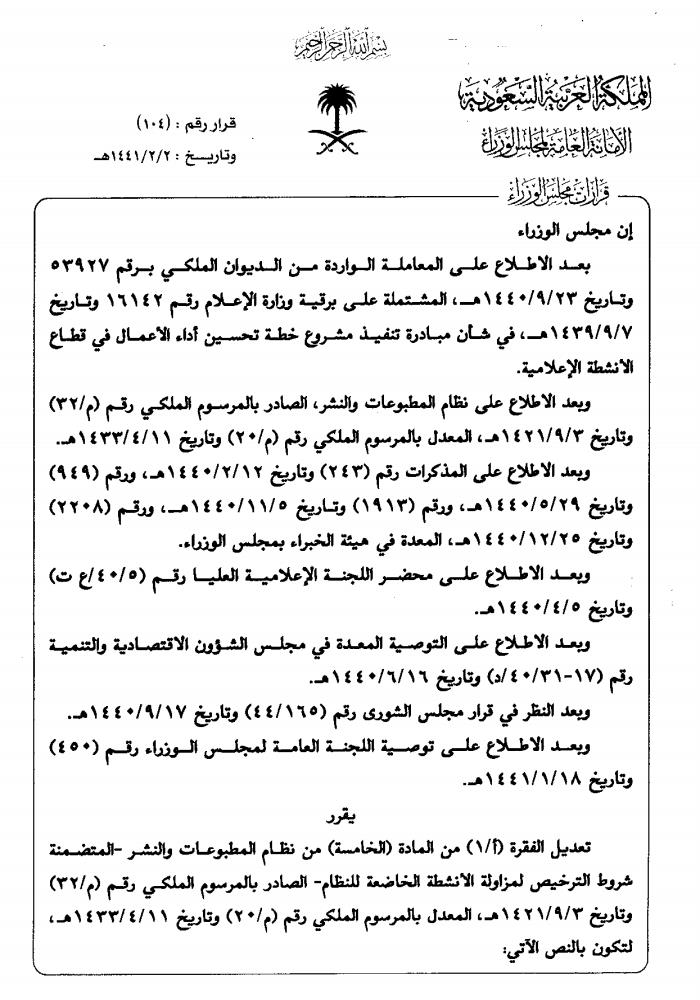 بسم الله الرحمن الرحيم
المملكة العربية السعودية
الأمانة العامة لمجلس الوزراء
قرار رقم : (١٠٤)
وتاريخ : ١٤٤١/٢/٢هـ
قرارات مجلس الوزراء
إن مجلس الوزراء
بعد الاطلاع على المعاملة الواردة من الديوان الملكي برقم ٥٣٩٢٧
وتاريخ ١٤٤٠/٩/٢٣هـ، المشتملة على برقية وزارة الإعلام رقم ١٦١٤٢ وتاريخ
١٤٣٩/٩/٧هـ، في شأن مبادرة تنفيذ مشروع خطة تحسين أداء الأعمال في قطاع
الأنشطة الإعلامية.
وبعد الاطلاع على نظام المطبوعات والنشر، الصادر بالمرسوم الملكي رقم (م/٣٢)
وتاريخ ١٤٢١/٩/٣هـ، المعدل بالمرسوم الملكي رقم (م/٢٠) وتاريخ ١٤٣٣/٤/١١هـ.
وبعد الاطلاع على المذكرات رقم (٢٤٣) وتاريخ ١٤٤٠/٢/١٢هـ، ورقم (٩٤٩)
وتاريخ ١٤٤٠/٥/٢٩هـ، ورقم (١٩١٣) وتاريخ ١٤٤٠/١١/٥هـ، ورقم (٢٢٠٨)
وتاريخ ١٤٤٠/١٢/٢٥هـ، المعدة في هيئة الخبراء بمجلس الوزراء.
وبعد الاطلاع على محضر اللجنة الإعلامية العليا رقم (٤٠/٥/ع ت)
وتاريخ ١٤٤٠/٤/٥هـ.
وبعد الاطلاع على التوصية المعدة في مجلس الشؤون الاقتصادية والتنمية
رقم (١٧-٤٠/٣١/د) وتاريخ ١٤٤٠/٦/١٦هـ.
وبعد النظر في قرار مجلس الشورى رقم (٤٤/١٦٥) وتاريخ ١٤٤٠/٩/١٧هـ.
وبعد الاطلاع على توصية اللجنة العامة لمجلس الوزراء رقم (٤٥٠)
وتاريخ ١٤٤١/١/١٨هـ.
يقرر
تعديل الفقرة (أ/١) من المادة (الخامسة) من نظام المطبوعات والنشر -المتضمنة
شروط الترخيص لمزاولة الأنشطة الخاضعة للنظام- الصادر بالمرسوم الملكي رقم (م/٣٢)
وتاريخ ١٤٢١/٩/٣هـ، المعدل بالمرسوم الملكي رقم (م/٢٠) وتاريخ ١٤٣٣/٤/١١هـ،
لتكون بالنص الآتي: